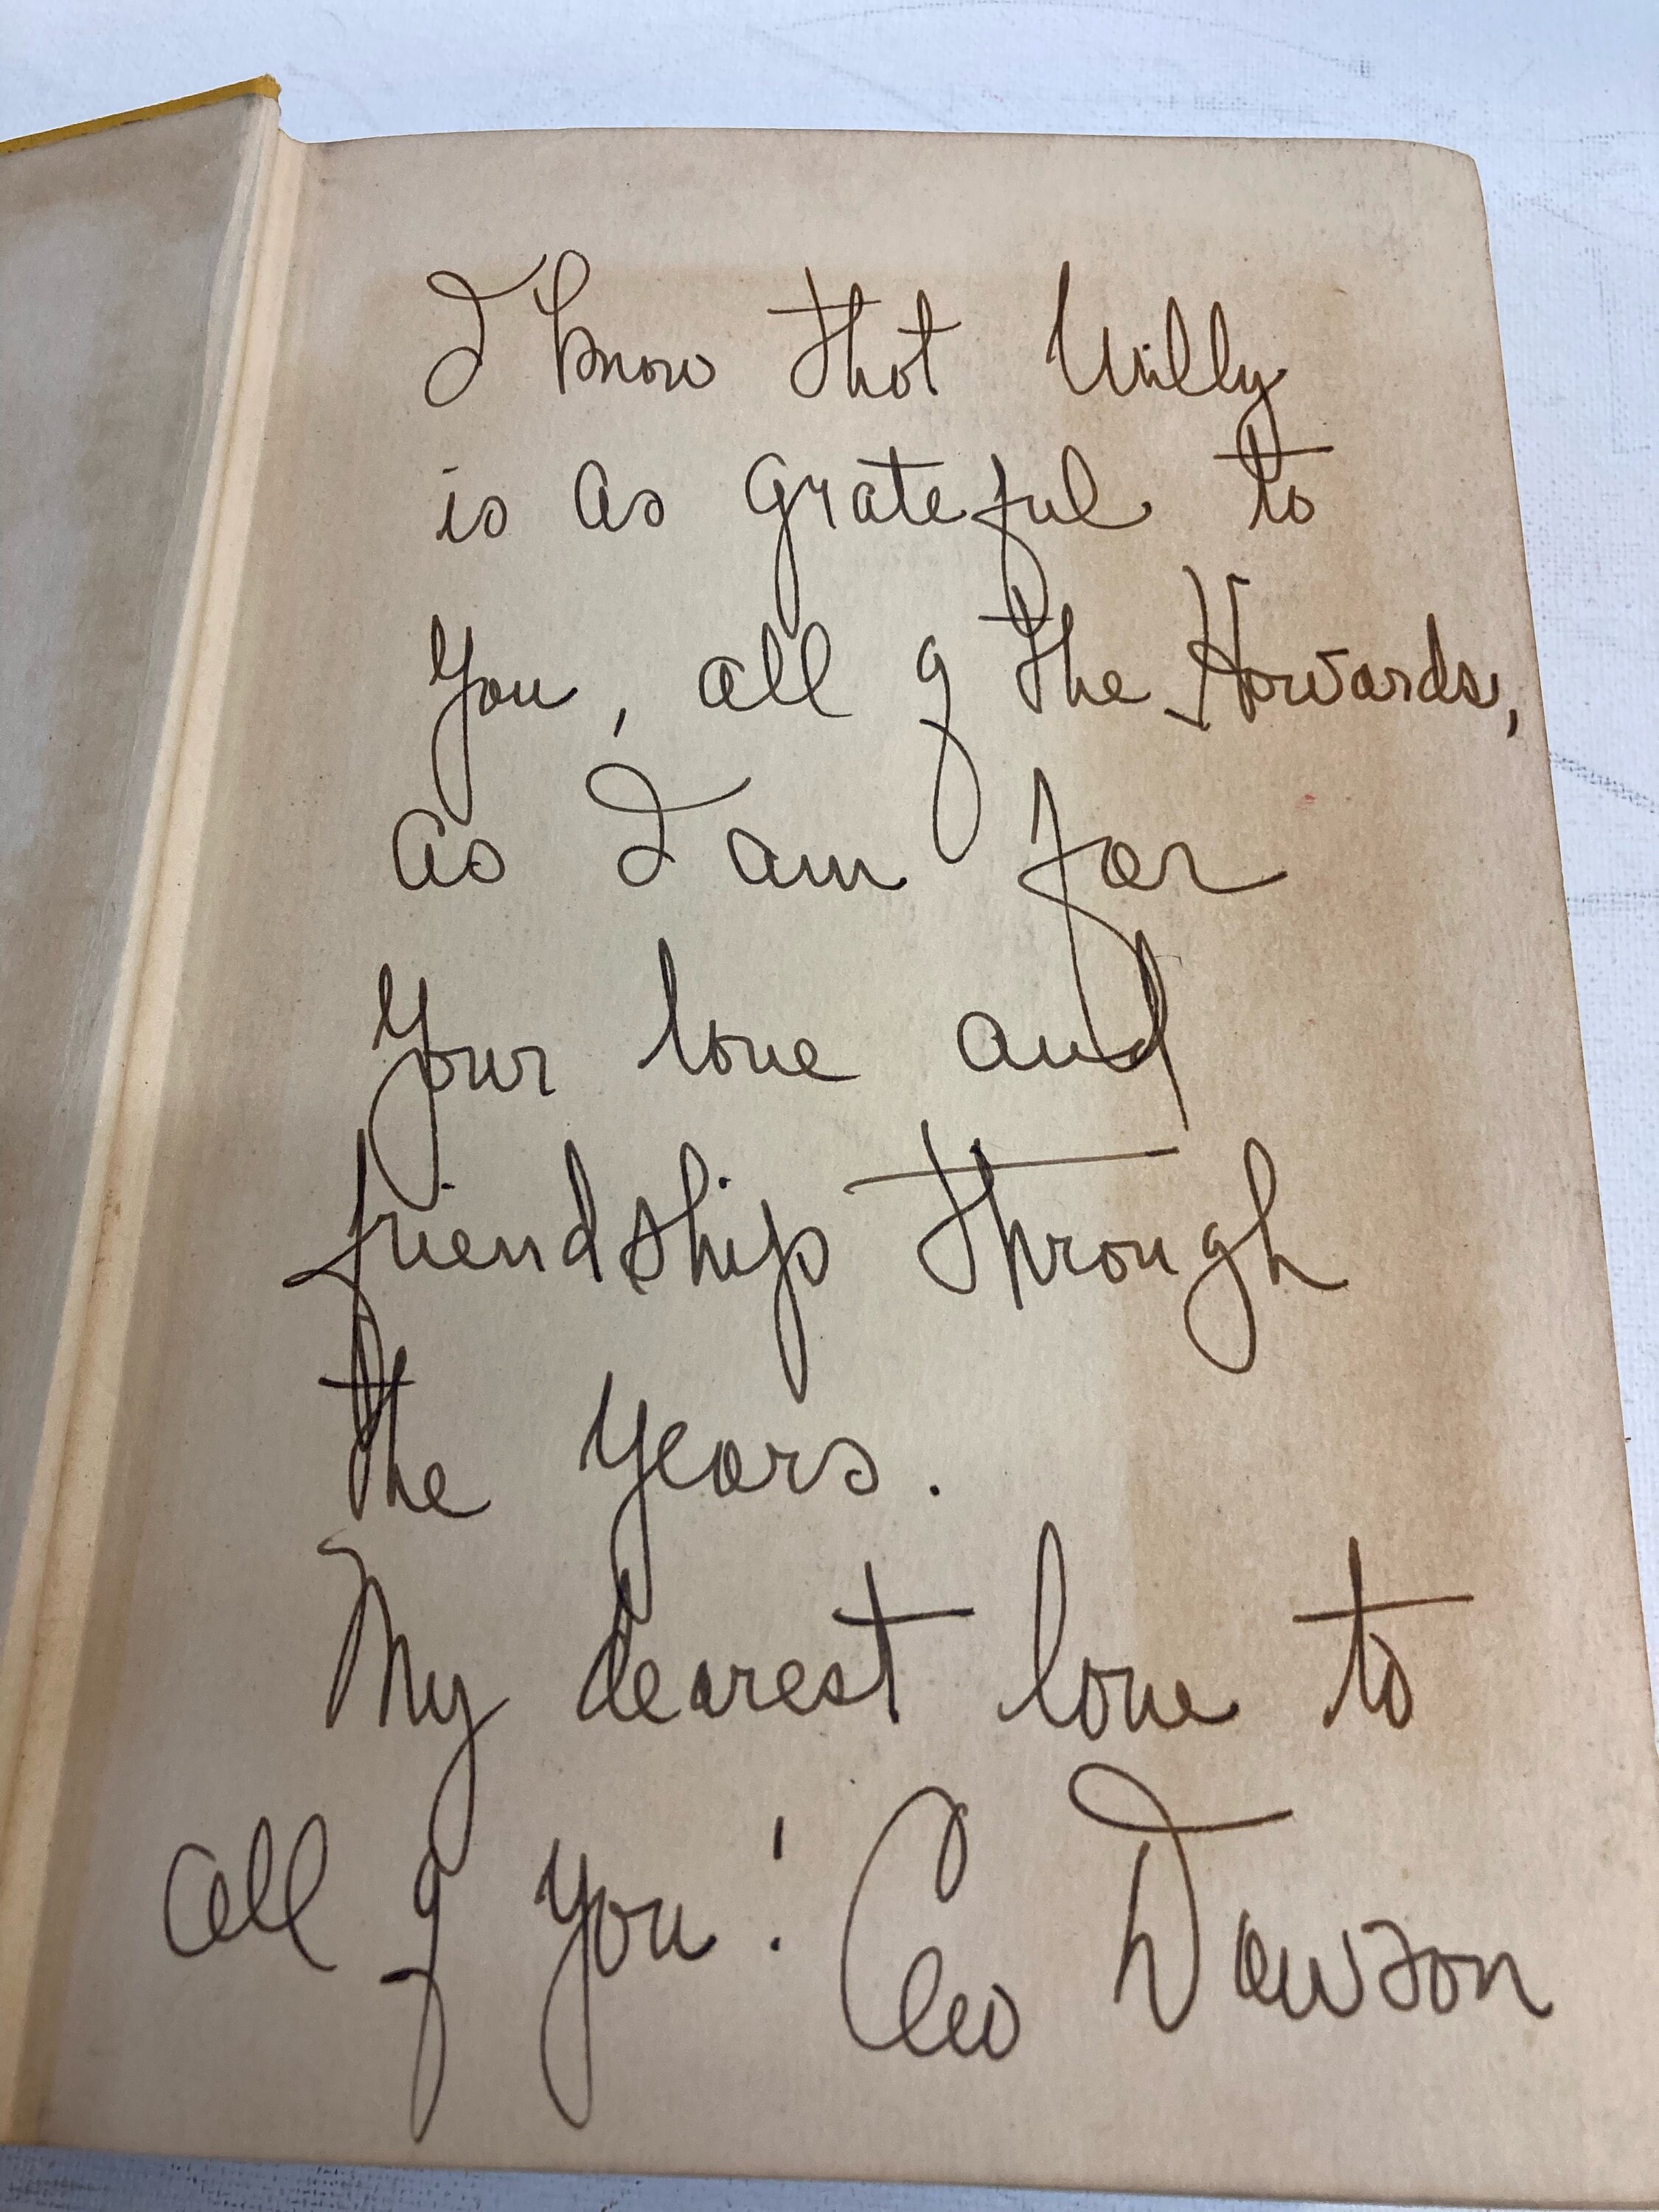 I know that Willy
is as grateful to
you, all of the Howards,
as I am for
your love and
friendship through
the years.
My dearest love to
all of you! Cleo Dawson